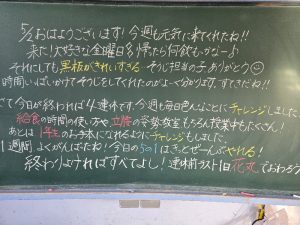 5/1 おはようございます! 今週も元気に来てくれたね!!
来た!大好きな金曜日 帰ったら何飲もっかな〜♪
それにしても黒板がきれいすぎる…そうじ担当の子ありがとう
時間いっぱいかけてそうじをしてくれたのがよ〜く分かります。すてきだね!!
さて今日が終われば4連休です。今週も毎日色んなことにチャレンジしました。
給食の時間の使い方や立腰の姿勢、教室もちろん授業中もたくさん!
あとは1年生のお手本になれるようにチャレンジもしました。
1週間よくがんばったね! 今日の5の1はきっとぜーんぶやれる!
終わりよければすべてよし! 連休前ラスト1日花丸でおわろう